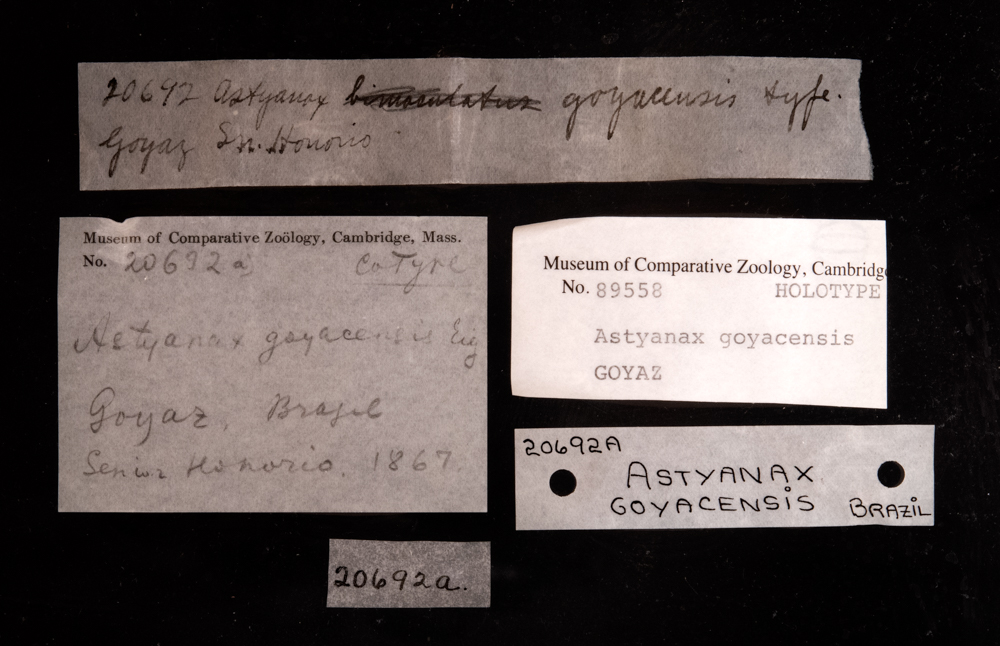 20692 Astyanax bimaculatus goyacensis type.
Goyaz Sn. Honorio
Museum of Comparative Zoölogy, Cambridge, Mass.
No. 20692 a CoType
Astyanax goyacensis Eig
Goyaz, Brazil
Senior Honorio. 1867.
Museum of Comparative Zoology, Cambridge
No. 89558 HOLOTYPE
Astyanax goyacensis
GOYAZ
20692A
ASTYANAX
GOYACENSIS BRAZiL
20692a.